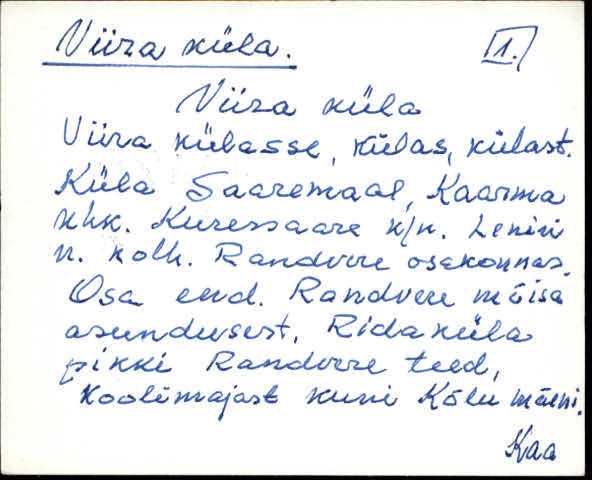 Viira küla.
[1.]
Viira küla
Viira külasse, külas, külast.
Küla Saaremaal, Kaarma
khk. Kuressaare k/n. Lenini
n. kolh. Randvere osakonnas.
Osa end. Randvere mõisa
asundusest. Ridaküla
pikki Randvere teed,
koolimajast kuni Kõlu mäeni.
Kaa